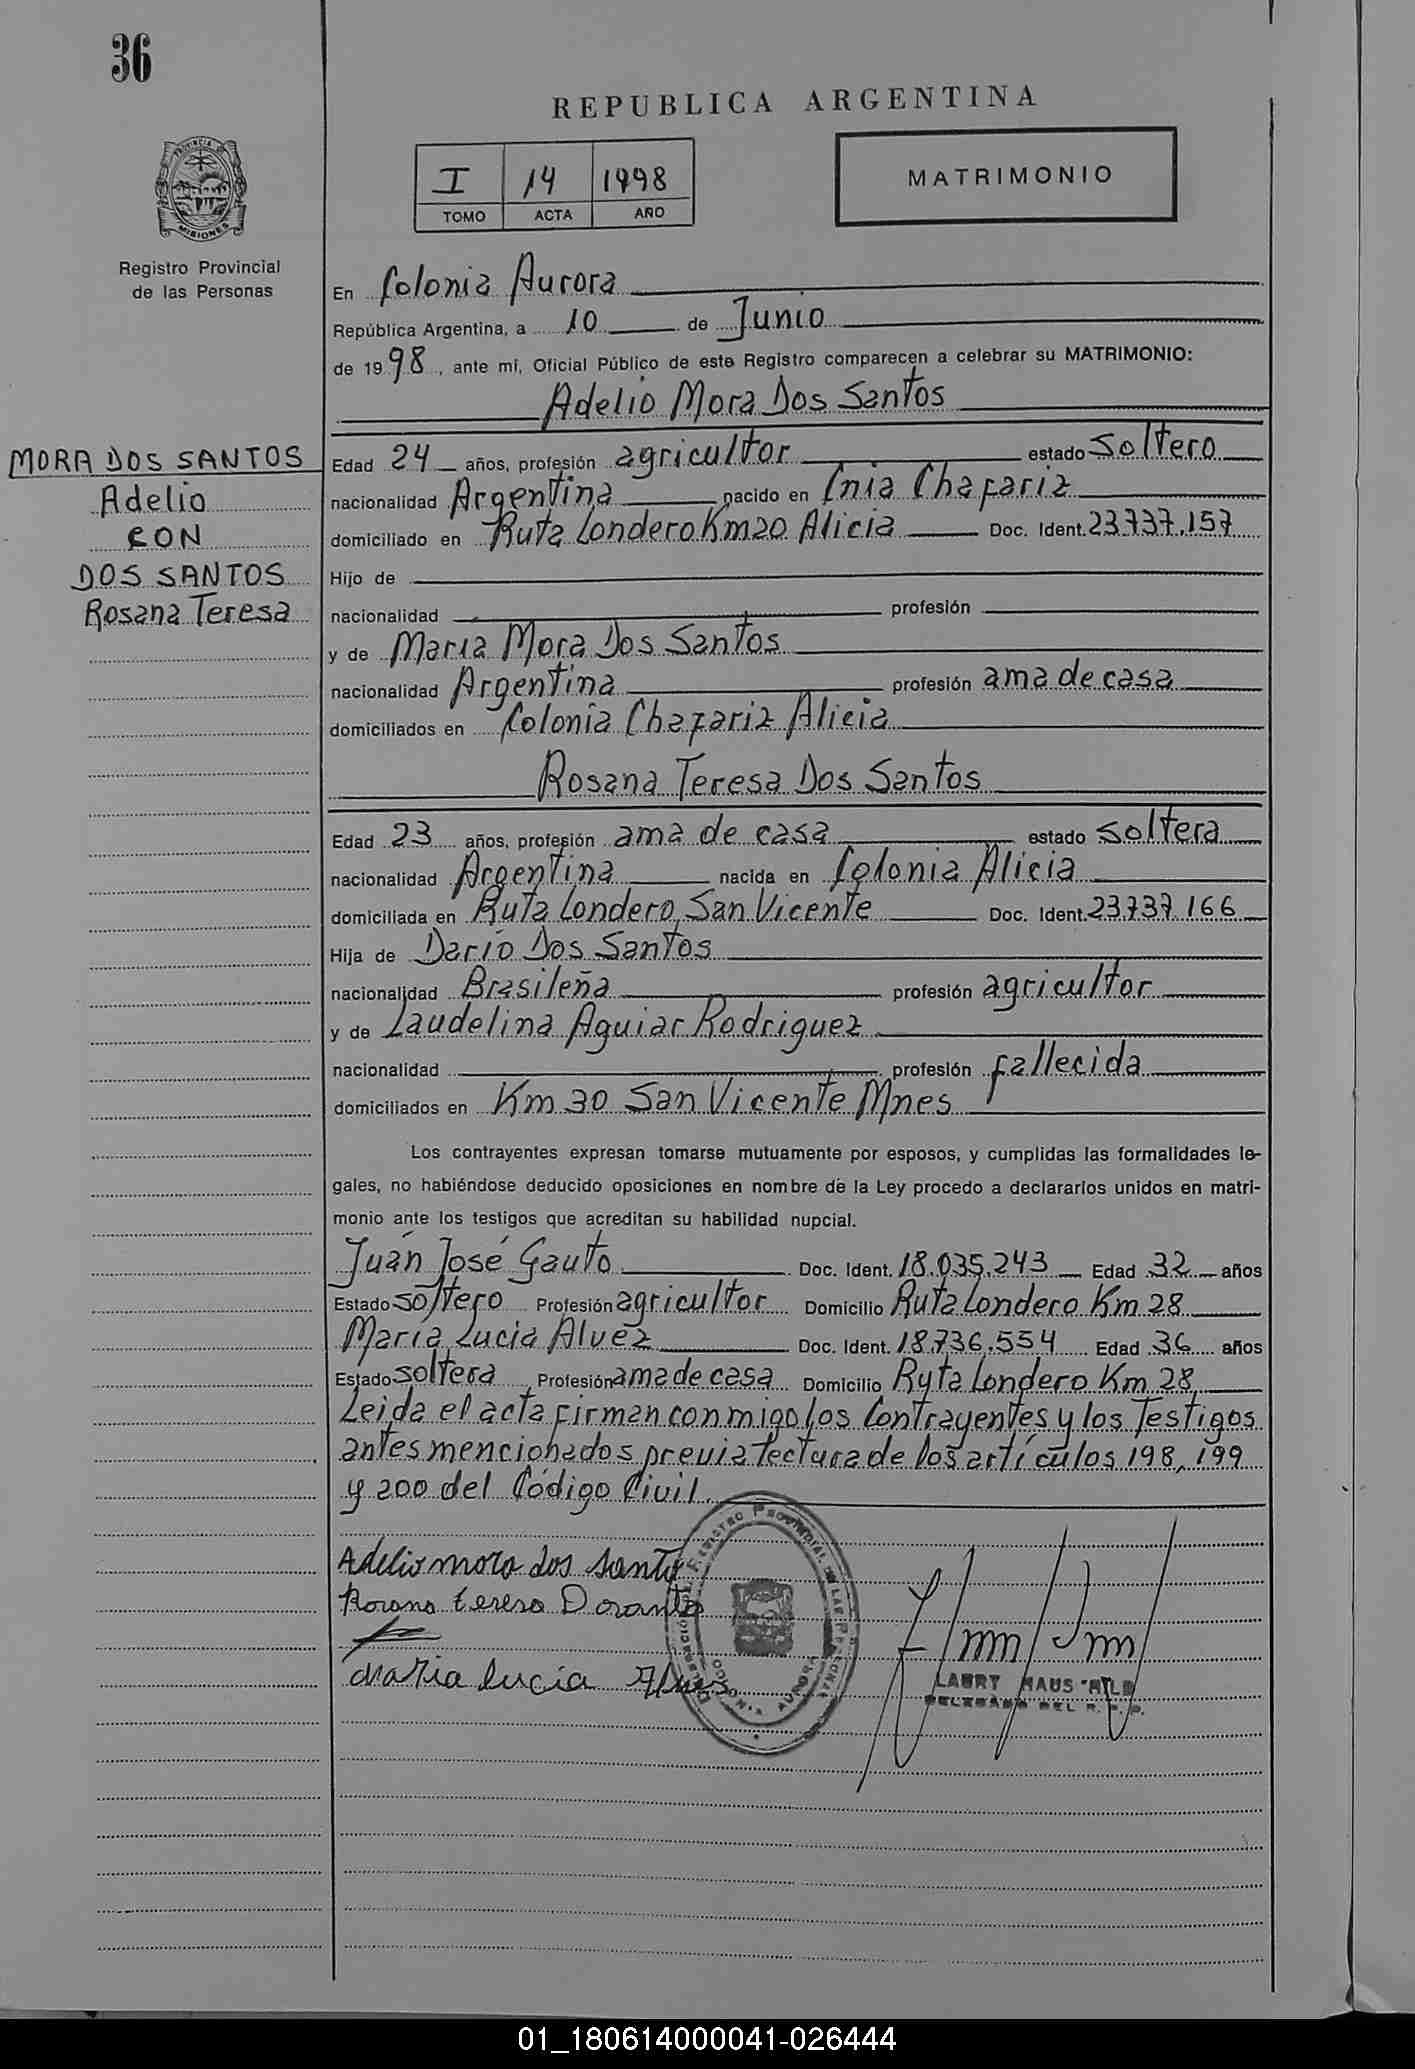 36
REPUBLICA ARGENTINA
I 14 1998
TOMO ACTA AÑO
MATRIMONIO
PROVINCIA DE MISIONES
Registro Provincial
de las Personas
En Colonia Aurora
República Argentina, a 10 de Junio
de 1998, ante mí, Oficial Público de este Registro comparecen a celebrar su MATRIMONIO:
Adelio Mora Dos Santos
MORA DOS SANTOS
Adelio
CON
DOS SANTOS
Rosana Teresa
Edad 24 años, profesión agricultor estado Soltero
nacionalidad Argentina nacido en Cnia Chafariz
domiciliado en Ruta Londero Km 20 Alicia Doc. Ident. 23.737.157
Hijo de
nacionalidad profesión
y de Maria Mora Dos Santos
nacionalidad Argentina profesión ama de casa
domiciliados en Colonia Chafariz Alicia
Rosana Teresa Dos Santos
Edad 23 años, profesión ama de casa estado Soltera
nacionalidad Argentina nacida en Colonia Alicia
domiciliada en Ruta Londero, San Vicente Doc. Ident. 23.737.166
Hija de Darío Dos Santos
nacionalidad Brasileña profesión agricultor
y de Laudelina Aguiar Rodriguez
nacionalidad profesión fallecida
domiciliados en Km 30 San Vicente Mnes
Los contrayentes expresan tomarse mutuamente por esposos, y cumplidas las formalidades le-
gales, no habiéndose deducido oposiciones en nombre de la Ley procedo a declararlos unidos en matri-
monio ante los testigos que acreditan su habilidad nupcial.
Juan José Gauto Doc. Ident. 18.035.243 Edad 32 años
Estado soltero Profesión agricultor Domicilio Ruta Londero Km 28
María Lucia Alvez Doc. Ident. 18.736.554 Edad 36 años
Estado soltera Profesión ama de casa Domicilio Ruta Londero Km 28
Leida el acta firman conmigo los Contrayentes y los Testigos
antes mencionados previa lectura de los artículos 198, 199
y 200 del Código Civil.
Adelio mora dos santos
Rosana teresa Dosantos
maria lucia Alves
COLONIA AURORA
DELEGADO DEL R. P. P.
01_180614000041-026444